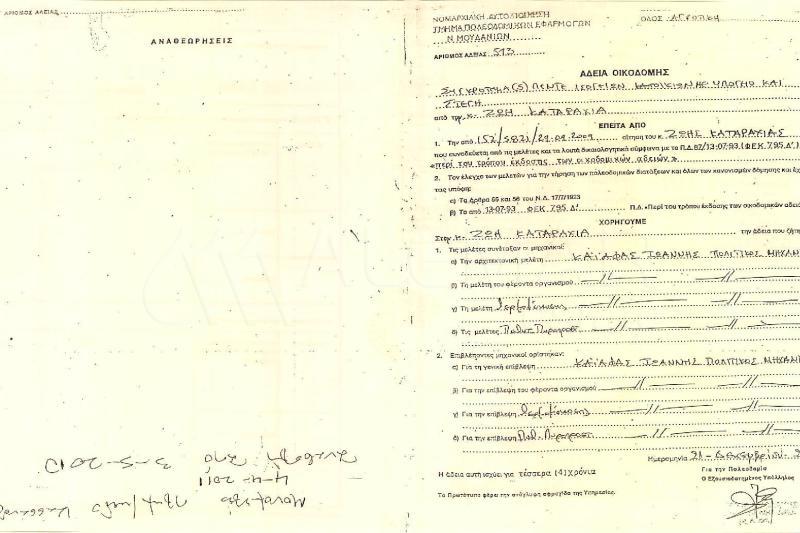 ΑΡΙΘΜΟΣ ΑΔΕΙΑΣ
ΑΝΑΘΕΩΡΗΣΕΙΣ
3-5-2010
4-4-2011
ΝΟΜΑΡΧΙΑΚΗ ΑΥΤΟΔΙΟΙΚΗΣΗ
ΤΜΗΜΑ ΠΟΛΕΟΔΟΜΙΚΩΝ ΕΦΑΡΜΟΓΩΝ
Ν ΜΟΥΔΑΝΙΩΝ
ΑΡΙΘΜΟΣ ΑΔΕΙΑΣ 513
ΟΔΟΣ ΑΓΡΟΤΙΚΗ
ΑΔΕΙΑ ΟΙΚΟΔΟΜΗΣ
ΠΕΝΤΕ ΙΣΟΓΕΙΩΝ ΚΑΤΟΙΚΙΩΝ ΜΕ ΥΠΟΓΕΙΟ ΚΑΙ
ΣΤΕΓΗ
από την κ. ΖΩΗ ΚΑΤΑΡΑΧΙΑ
ΕΠΕΙΤΑ ΑΠΟ
1. Την από αίτηση του κ. ΖΩΗΣ ΚΑΤΑΡΑΧΙΑΣ
που συνοδεύεται από τις μελέτες και τα λοιπά δικαιολογητικά σύμφωνα με το Π.Δ.87/13-07-93 (ΦΕΚ 795 Δ')
«περί του τρόπου έκδοσης των οικοδομικών αδειών»
2. Τον έλεγχο των μελετών για την τήρηση των πολεοδομικών διατάξεων και όλων των κανονισμών δόμησης και έχ
τας υπόψη:
α) Τα Άρθρα 55 και 56 του Ν.Δ. 17/7/1923
β) Το από 13-07-93 ΦΕΚ 795 Δ' Π.Δ. «Περί του τρόπου έκδοσης των οικοδομικών αδει
ΧΟΡΗΓΟΥΜΕ
Στην κ. ΖΩΗ ΚΑΤΑΡΑΧΙΑ την άδεια που ζήτη
1. Τις μελέτες συνέταξαν οι μηχανικοί:
α) Την αρχιτεκτονική μελέτη ΚΑΪΑΦΑΣ ΙΩΑΝΝΗΣ ΠΟΛΙΤΙΚΟΣ ΜΗΧΑΝ
β) Τη μελέτη του φέροντα οργανισμού — // — — // —
γ) Τη μελέτη Θερμομόνωσης — // — — // —
δ) Τις μελέτες Παθητ. Πυροπροστ — // — — // —
2. Επιβλέποντες μηχανικοί ορίστηκαν:
α) Για τη γενική επίβλεψη ΚΑΪΑΦΑΣ ΙΩΑΝΝΗΣ ΠΟΛΙΤΙΚΟΣ ΜΗΧΑΝΙ
β) Για την επίβλεψη του φέροντα οργανισμού — // — — // —
γ) Για την επίβλεψη Θερμομόνωσης — // — — // —
δ) Για την επίβλεψη Παθ. Πυροπροστ — // — — // —
Ημερομηνία 21 - Δεκεμβρίου -
Η άδεια αυτή ισχύει για τέσσερα (4) χρόνια
Για την Πολεοδομία
Ο Εξουσιοδοτημένος Υπάλληλος
Το Πρωτότυπο φέρει την ανάγλυφη σφραγίδα της Υπηρεσίας.